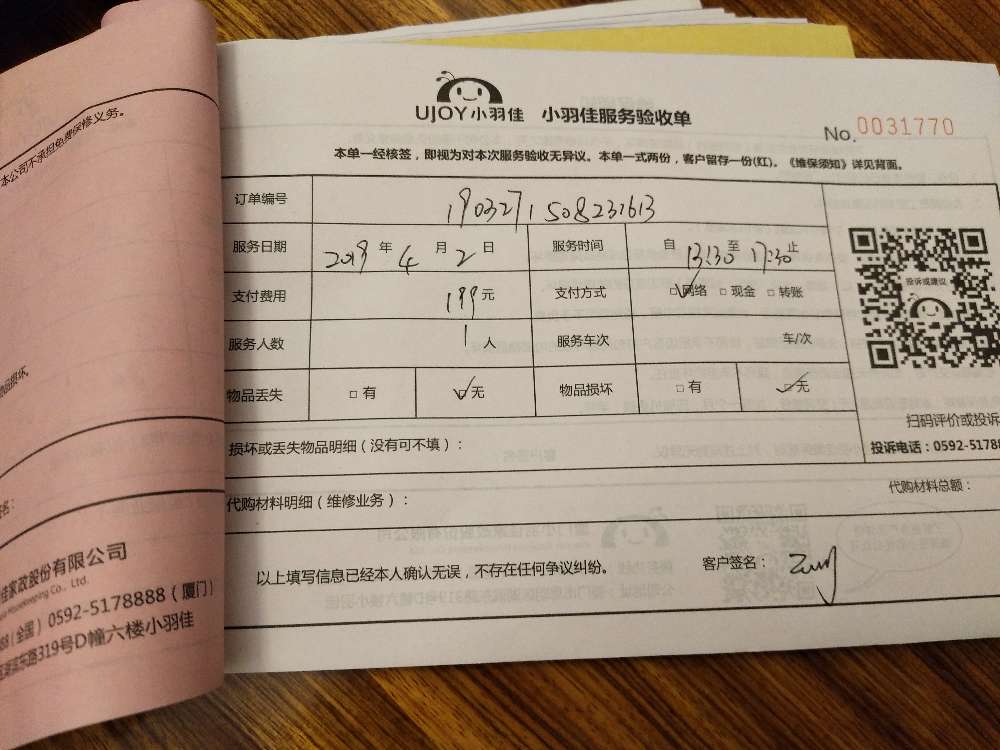 本公司不承担免费保修义务。
物品损坏。
佳家政股份有限公司
Housekeeping Co., Ltd.
88(全国) 0592-5178888(厦门)
东路319号D幢六楼小羽佳
UJOY小羽佳 小羽佳服务验收单
No. 0031770
本单一经核签，即视为对本次服务验收无异议。本单一式两份，客户留存一份(红)。《维保须知》详见背面。
订单编号 190327150823 1613
服务日期 2019 年 4 月 2 日 服务时间 自 13:30 至 17:30 止
支付费用 199 元 支付方式 ☑ 网络 □ 现金 □ 转账
服务人数 1 人 服务车次 车/次
物品丢失 □ 有 ☑ 无 物品损坏 □ 有 ☑ 无
投诉或建议
扫码评价或投诉
投诉电话：0592-5178
损坏或丢失物品明细（没有可不填）：
代购材料明细（维修业务）： 代购材料总额：
以上填写信息已经本人确认无误，不存在任何争议纠纷。 客户签名：